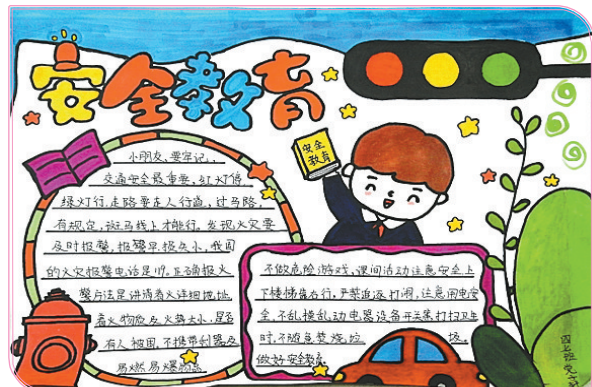 安全教育
安全
教育
小朋友、要牢记,
交通安全最重要,红灯停,
绿灯行,走路要走人行道,过马路,
有规定,斑马线上才能行。发现火灾要
及时报警,报警早损失小,我国
的火灾报警电话是119。正确报火
警方法是讲清着火详细地址
着火物质及火势大小,是否
有人被困,不携带利器及
易燃易爆物品
不做危险游戏,课间活动注意安全上
下楼梯靠右行。严禁追逐打闹,注意用电安
全,不乱摸乱动电器设备开关禁打扫卫生
时,不随意焚烧垃圾。
做好安全教育